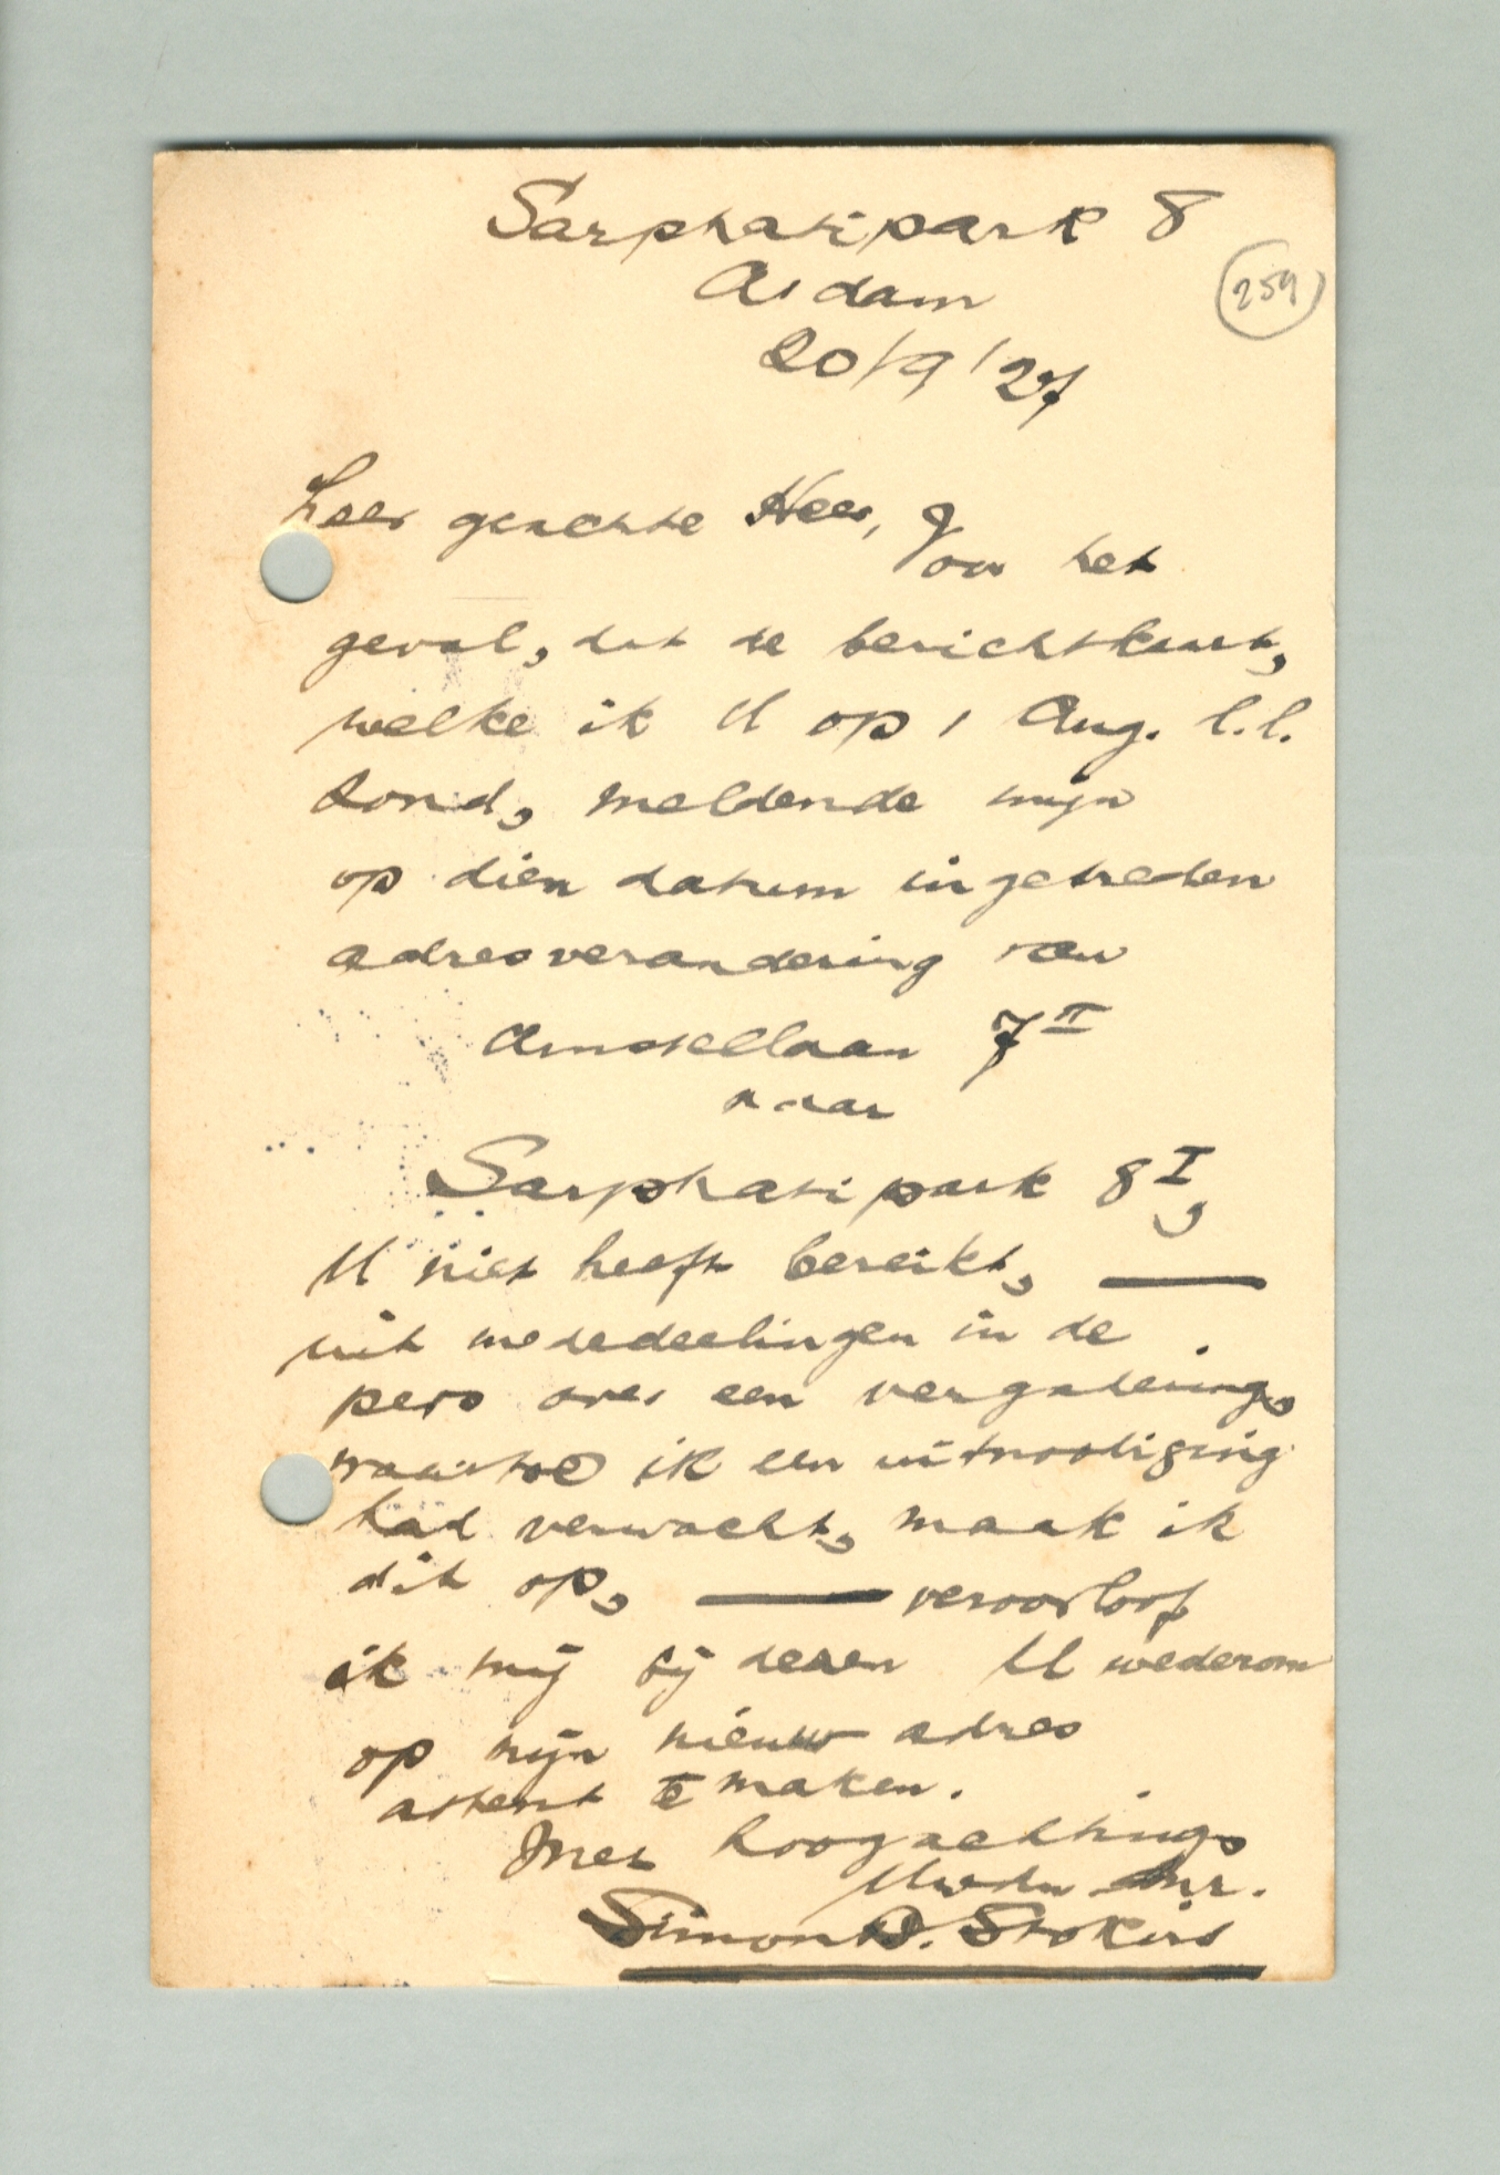 Sarphatipark 8
A'dam
259
20/9/'27
Zeer geachte Heer,
Voor het
geval, dat de berichtkaart,
welke ik U op 1 Aug. l.l.
zond, meldende mijn
op dien datum ingetreden
adresverandering van
Amstellaan 7 II
naar
Sarphatipark 8 I,
U niet heeft bereikt, —
uit mededeelingen in de
pers over een vergadering,
waartoe ik een uitnoodiging
had verwacht, maak ik
dit op, — veroorloof
ik mij bij dezen U wederom
op mijn nieuw adres
attent te maken.
Met hoogachting,
Uwdw dnr.
Simon D. Stokvis